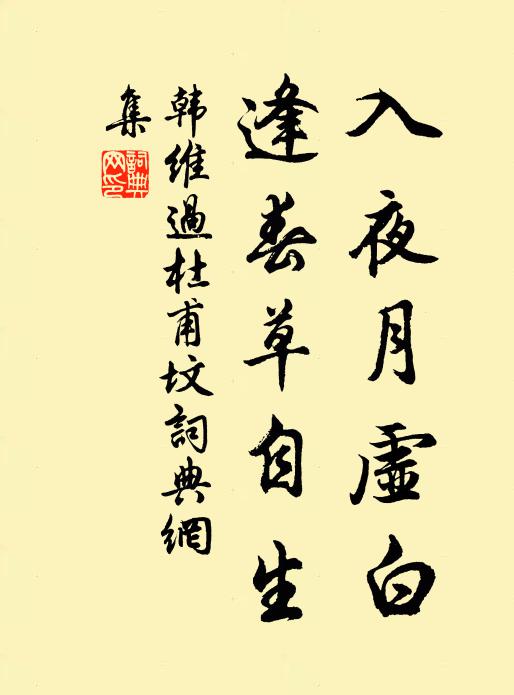 入夜月虛白
逢春草自生
韩維過杜甫坟詞典網
集
詞典
网印